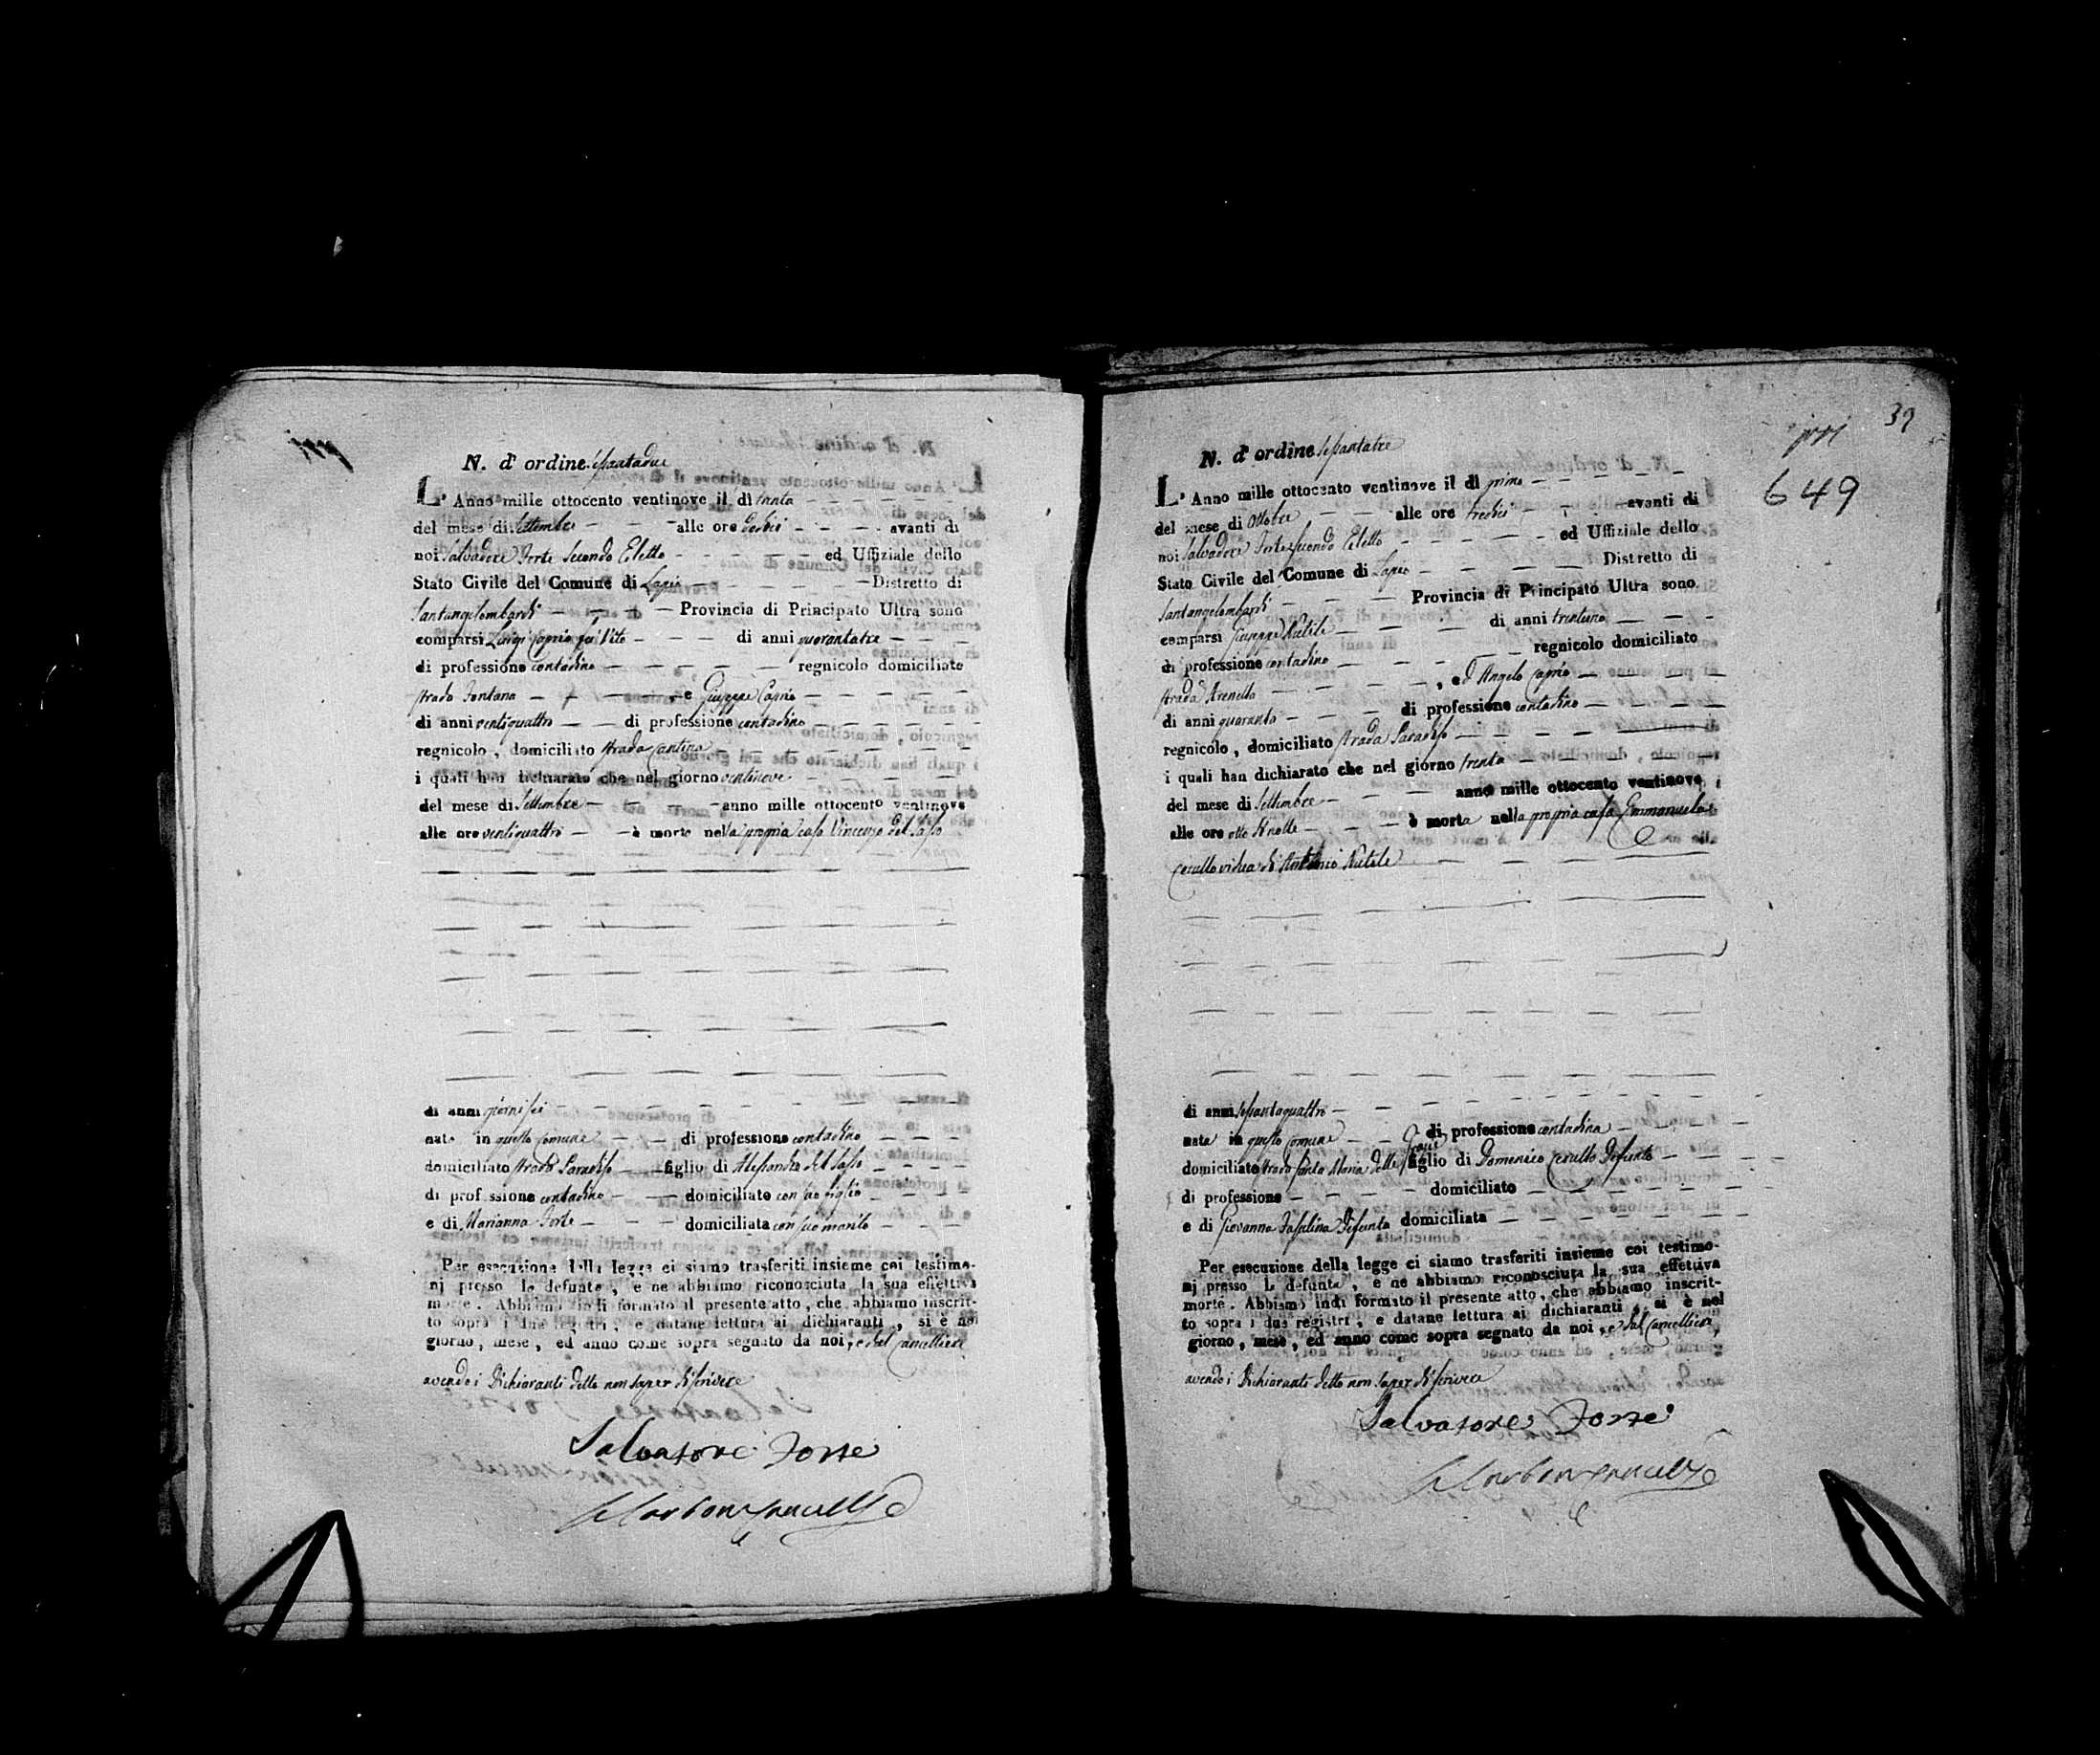 N. d'ordine sessantadue
L'Anno mille ottocento ventinove il dì trenta
del mese di Settembre alle ore avanti di
noi Salvadore Forte Secondo Eletto ed Uffiziale dello
Stato Civile del Comune di Lapio Distretto di
Santangelombardi Provincia di Principato Ultra sono
comparsi Luigi Caprio fu Vito di anni quarantatre
di professione contadino regnicolo domiciliato
strada Fontana e Giuseppe Caprio
di anni ventiquattro di professione contadino
regnicolo, domiciliato strada Cantina
i quali han dichiarato che nel giorno ventinove
del mese di Settembre anno mille ottocento ventinove
alle ore ventiquattro è morto nella propria casa Vincenzo del Sasso
di anni giorni sei
nato in questo Comune di professione contadino
domiciliato strada Paradiso figlio di Alessandro del Sasso
di professione contadino domiciliato con suo figlio
e di Marianna Forte domiciliata con suo marito
Per esecuzione della legge ci siamo trasferiti insieme coi testimo-
nj presso lo defunto, e ne abbiamo riconosciuta la sua effettiva
morte. Abbiamo indi formato il presente atto, che abbiamo inscrit-
to sopra i due registri, e datane lettura ai dichiaranti, si è nel
giorno, mese, ed anno come sopra segnato da noi, e dal Cancelliere
avendo i Dichiaranti detto non saper di scrivere
Salvatore Forte
39
649
N. d'ordine sessantatre
L'Anno mille ottocento ventinove il dì primo
del mese di Ottobre alle ore tredici avanti di
noi Salvadore Forte Secondo Eletto ed Uffiziale dello
Stato Civile del Comune di Lapio Distretto di
Santangelombardi Provincia di Principato Ultra sono
comparsi Giuseppe Nutile di anni trentuno
di professione contadino regnicolo domiciliato
strada Arenella , ed Angelo Caprio
di anni quaranta di professione contadino
regnicolo, domiciliato strada Paradiso
i quali han dichiarato che nel giorno trenta
del mese di Settembre anno mille ottocento ventinove
alle ore otto di notte è morta nella propria casa Emmanuela
Cerullo vidua di Antonio Nutile
di anni sessantaquattro
nata in questo Comune di professione contadina
domiciliato strada Santa Maria delle figlio di Domenico Cerullo Defunto
di professione domiciliato
e di Giovanna Defunta domiciliata
Per esecuzione della legge ci siamo trasferiti insieme coi testimo-
nj presso la defunta, e ne abbiamo riconosciuta la sua effettiva
morte. Abbiamo indi formato il presente atto, che abbiamo inscrit-
to sopra i due registri, e datane lettura ai dichiaranti, si è nel
giorno, mese, ed anno come sopra segnato da noi, e dal Cancelliere,
avendo i Dichiaranti detto non saper di scrivere
Salvatore Forte